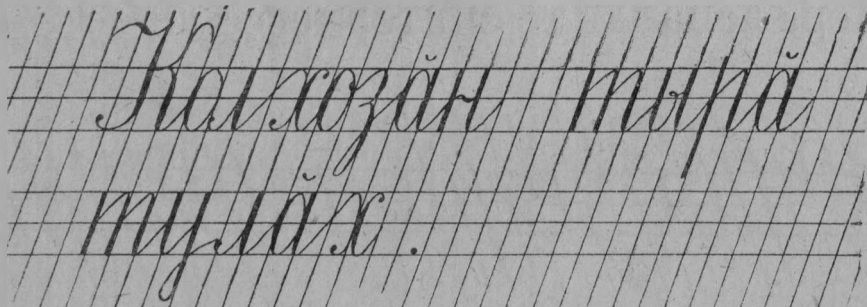 Колхозӑн тырӑ
тулӑх.